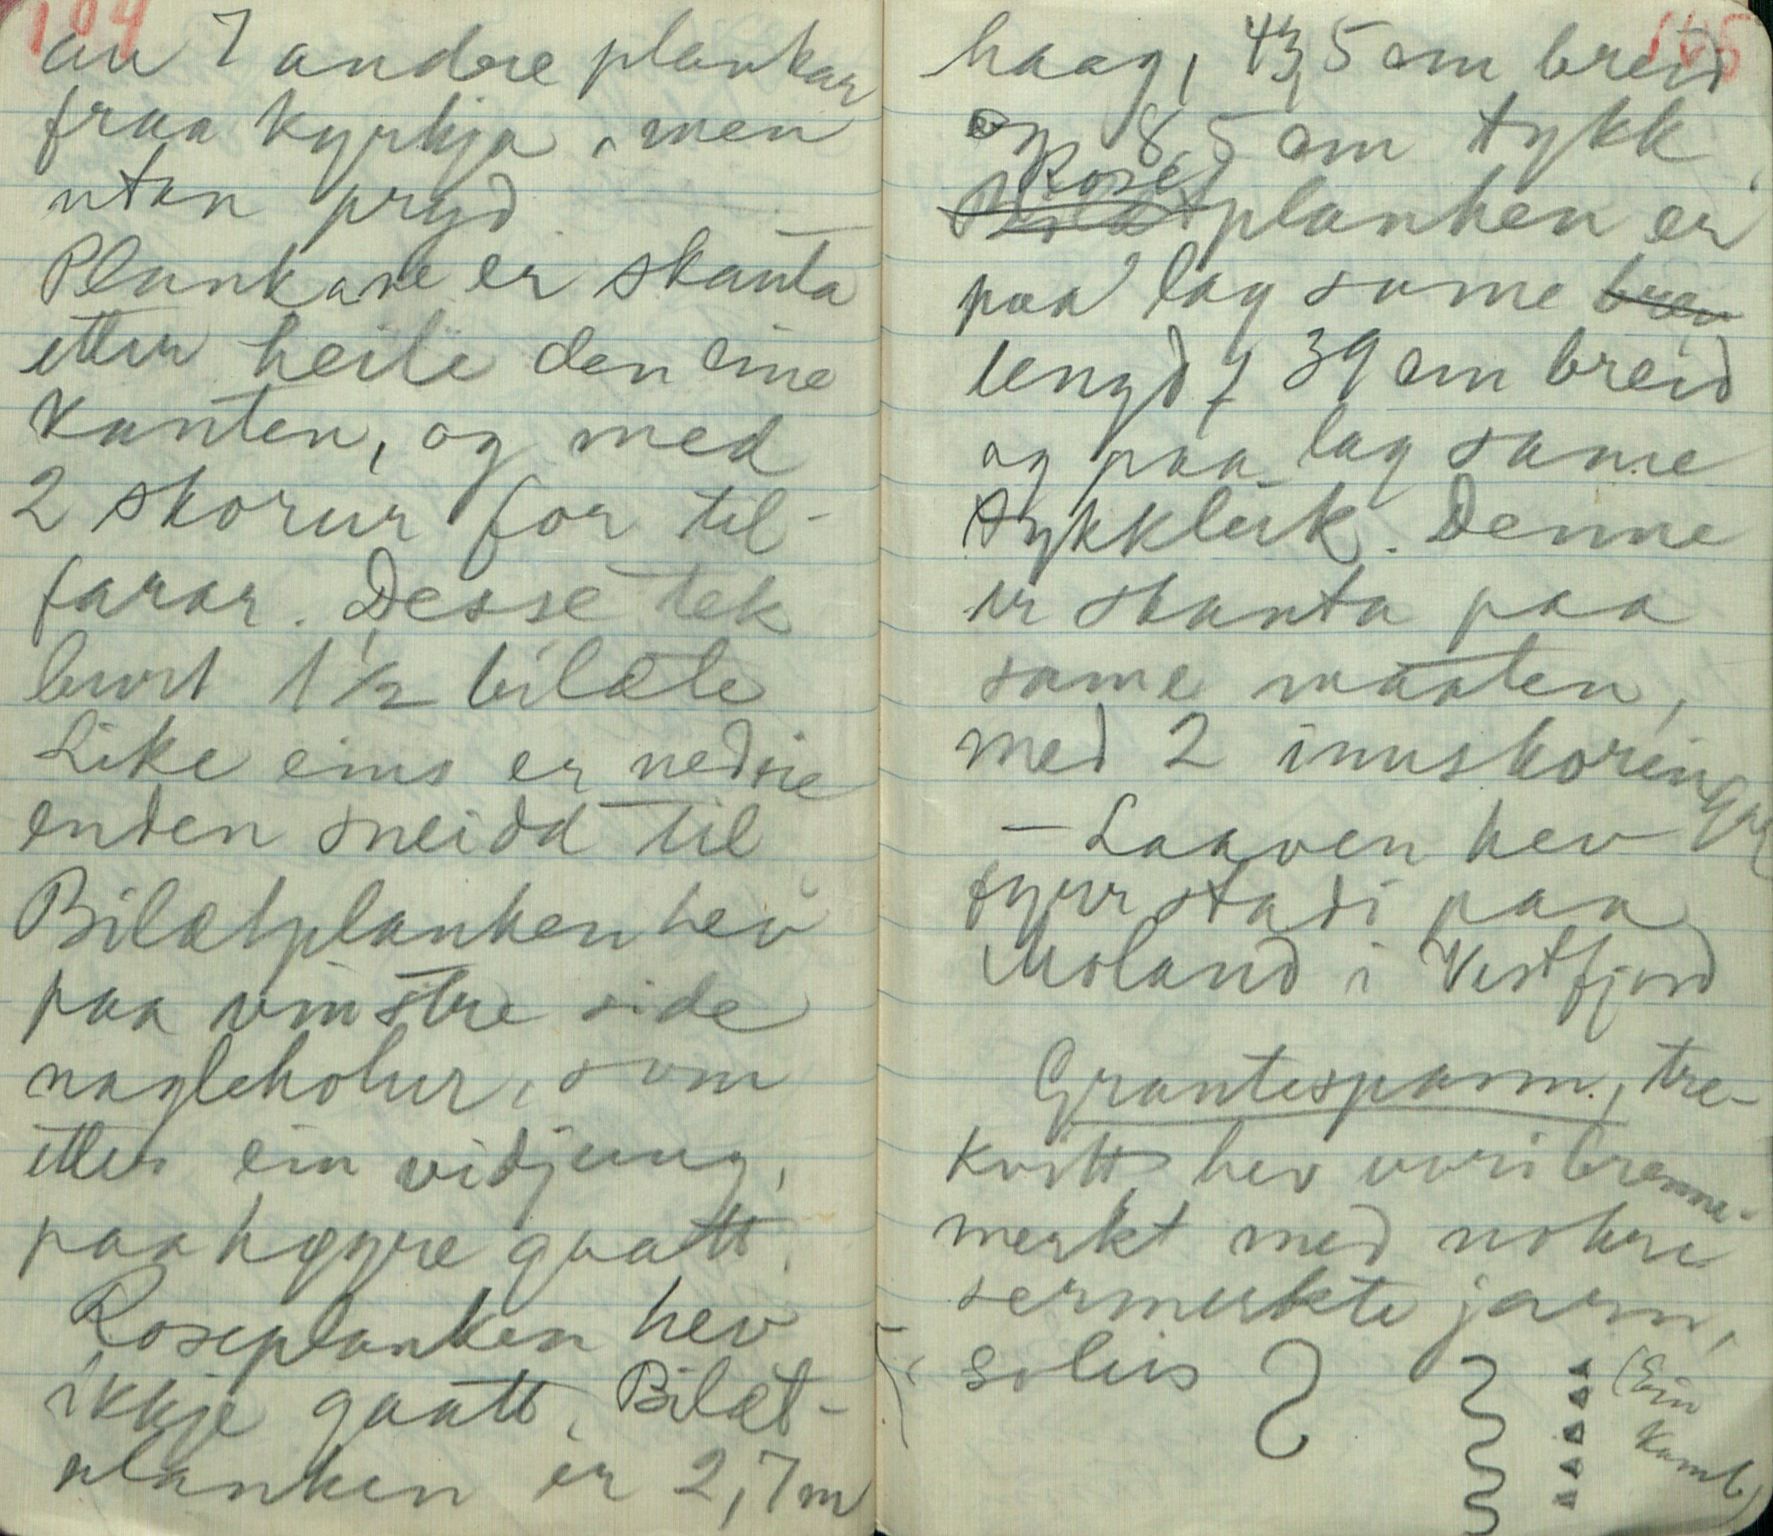 104
au 7 andre plankar
fraa kyrkja, men
utan pryd
Plankane er skanta
etter heile den eine
kanten, og med
2 skorur for til-
farar. Desse tek
burt 1 1/2 bilæte
Like eins er nedsie
enden sneidd til
Bilætplanken hev
paa vinstre side
nagleholur, som
etter ein vidjeung,
paa høgre gaatt.
Roseplanken hev
ikkje gaatt. Bilæt-
planken er 2,7 m
105
haag, 43,5 cm breid
og 8,5 cm tykk,
Rose
Bilætplanken er
paa lag same brei
lengd, 39 cm breid
og paa lag same
tykkleik. Denne
er skanta paa
same maaten,
med 2 innskoringar
- Laaven hev
fyrr stadi paa
Moland i Vestfjord
Grantesparm., tre-
kvitt hev vori brenne-
merkt med nokre
sermerkte jarn,
soleis
(Ein
kamb)